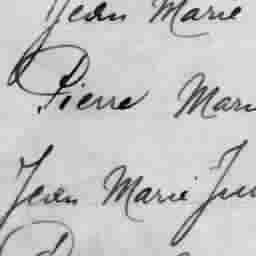 Jean Marie
Pierre Mari
Jean Marie Ju